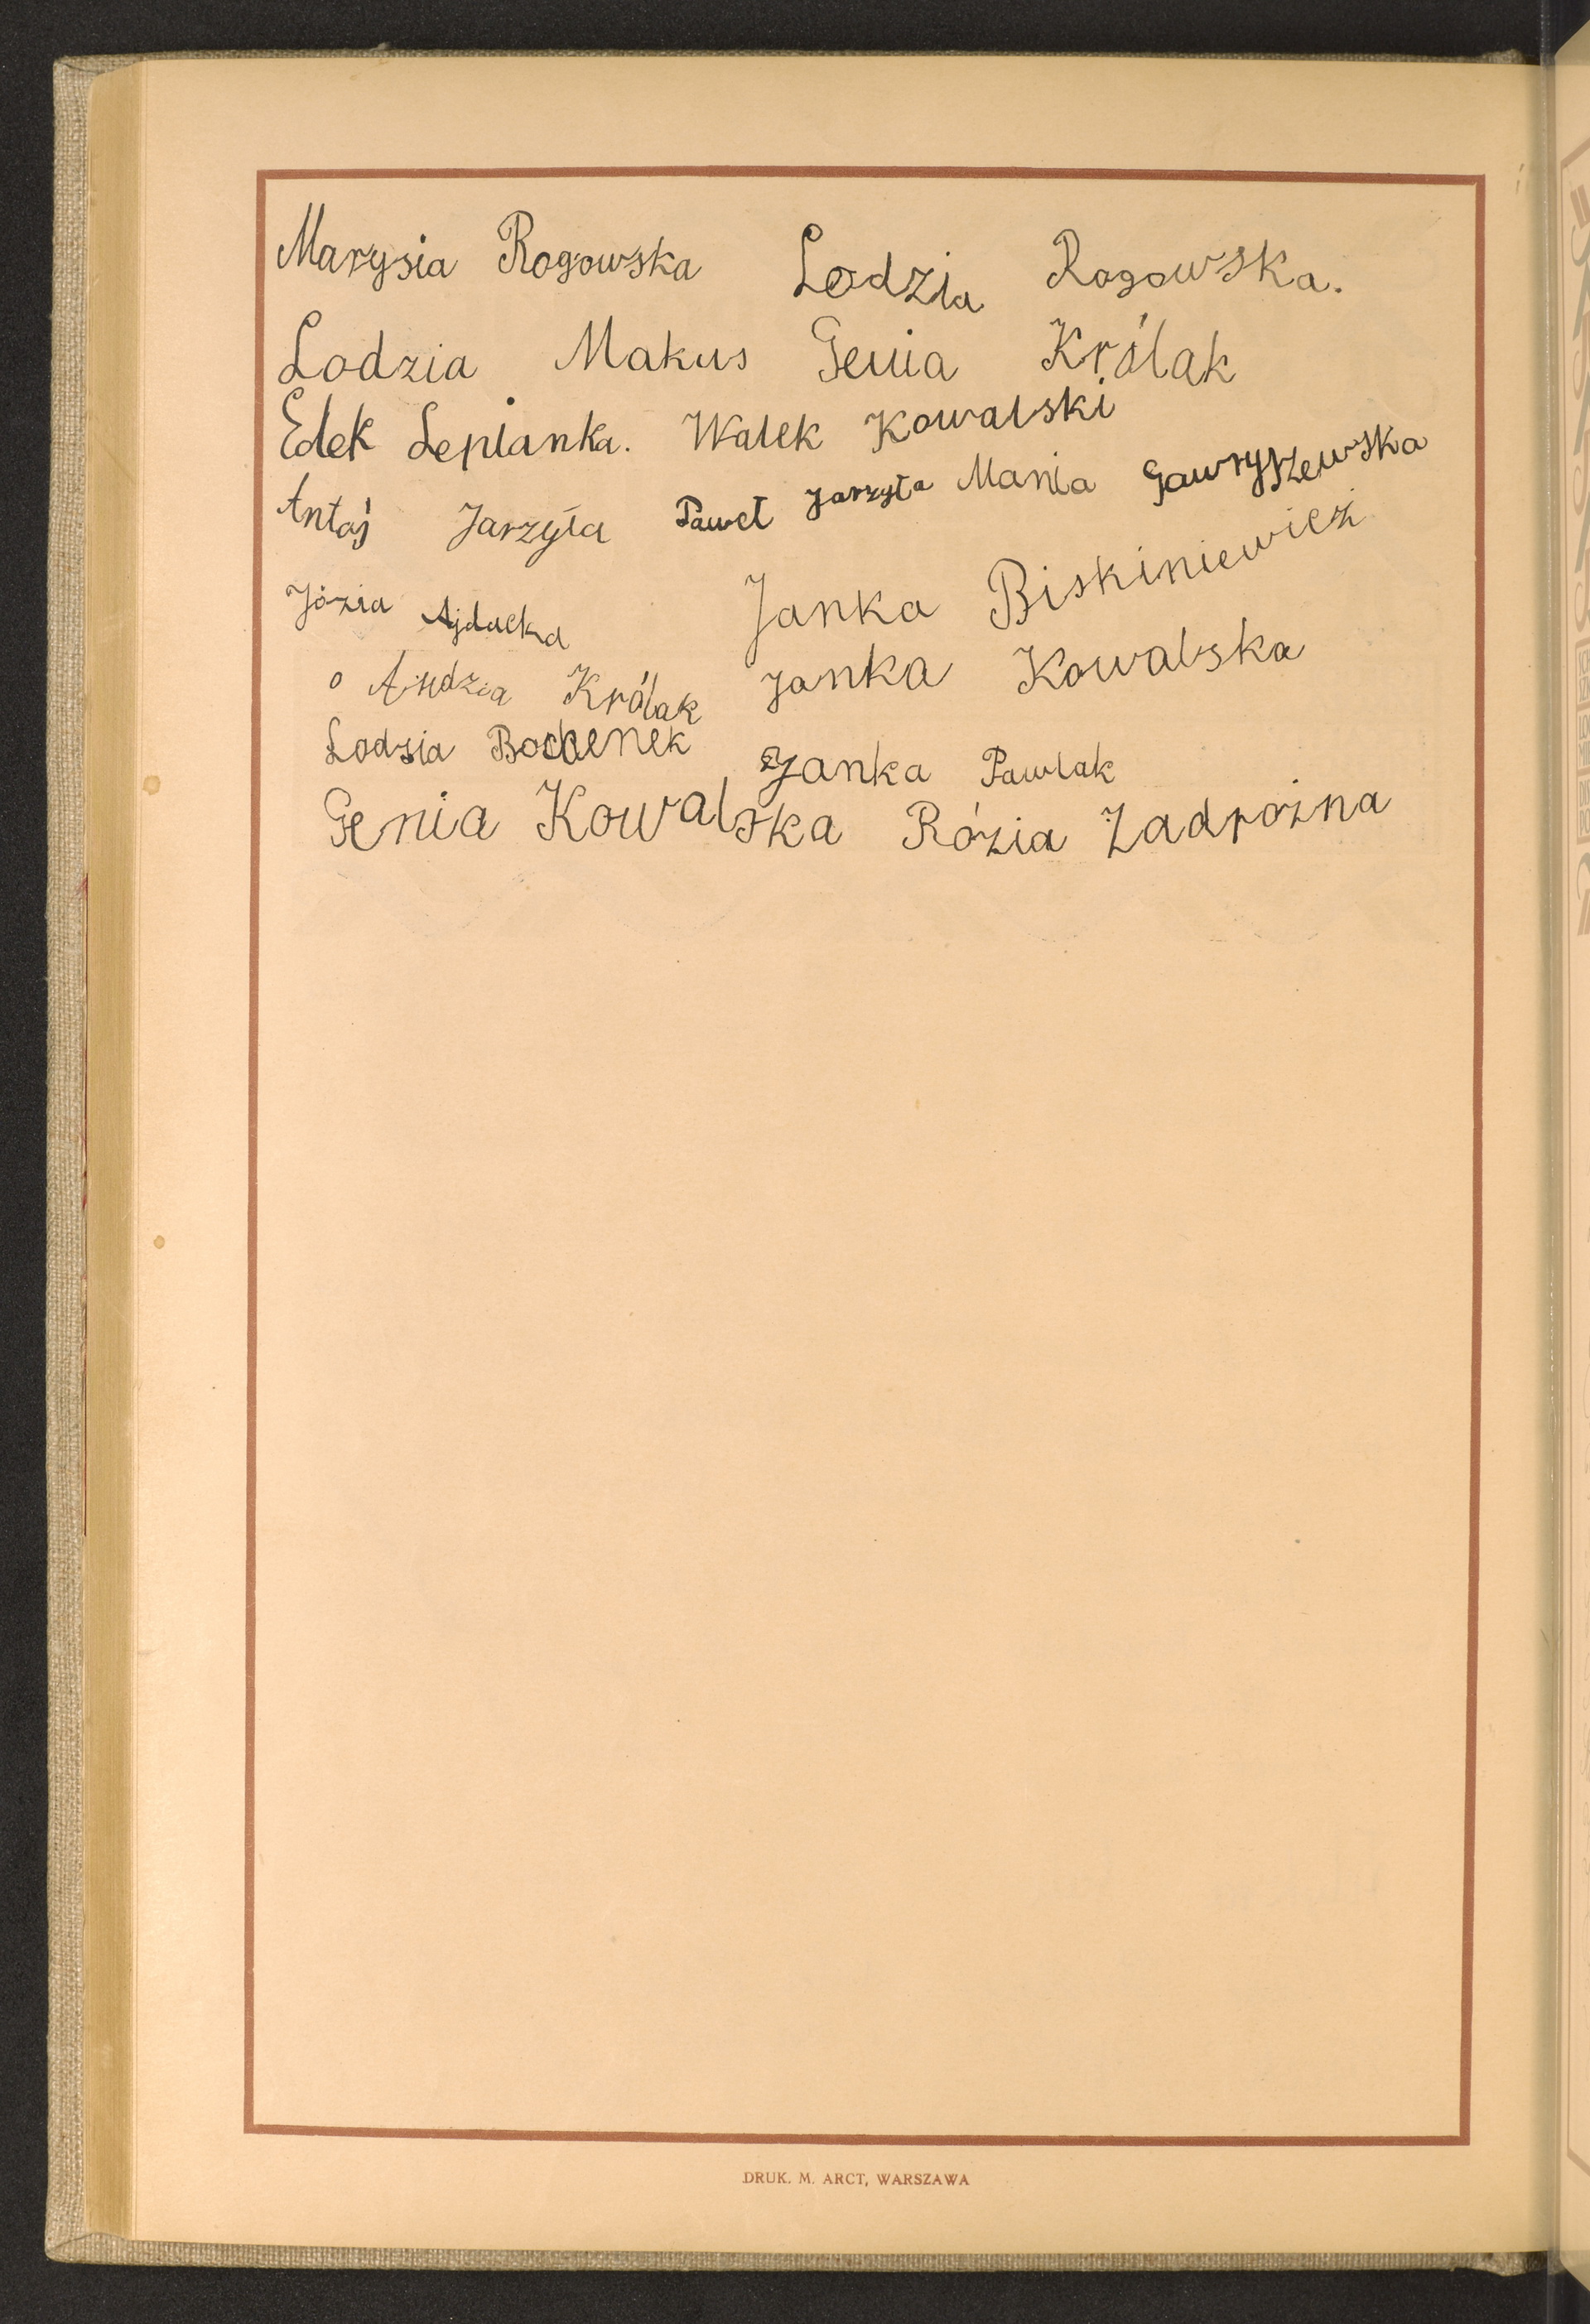 Marysia Rogowska Lodzia Rogowska.
Lodzia Makus Genia Królak
Edek Lepianka. Walek Kowalski
Antoś Jarzyła Paweł Jarzyła Mania Gawryszewska
Józia Ajdacka Janka Biskiniewicz
Andzia Królak Janka Kowalska
Lodzia Bochenek Janka Pawlak
Genia Kowalska Rózia Zadrożna
DRUK. M. ARCT, WARSZAWA